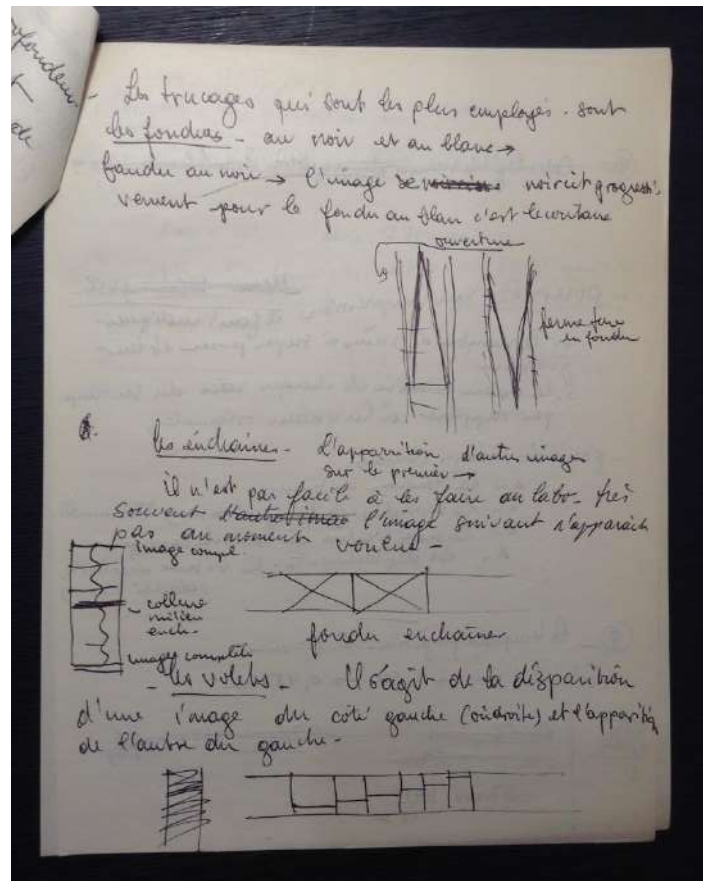 ofondeur
t
de
- Les trucages qui sont les plus employés - sont
les fondus - au noir et au blanc →
fondu au noir → l'image se noircit progressi-
vement pour le fondu au blan c'est le contraire
ouverture
fermeture
en fondu
les enchainés - L'apparition d'autres images
sur le premier →
il n'est pas facile à les faire au labo - très
souvent l'autre image l'image suivant n'apparait
pas au moment voulue -
image compl.
collure
milieu
ench.
image complète
fondu enchainer
- les volets - Il s'agit de la disparition
d'une image du côté gauche (ou droite) et l'apparition
de l'autre du gauche -